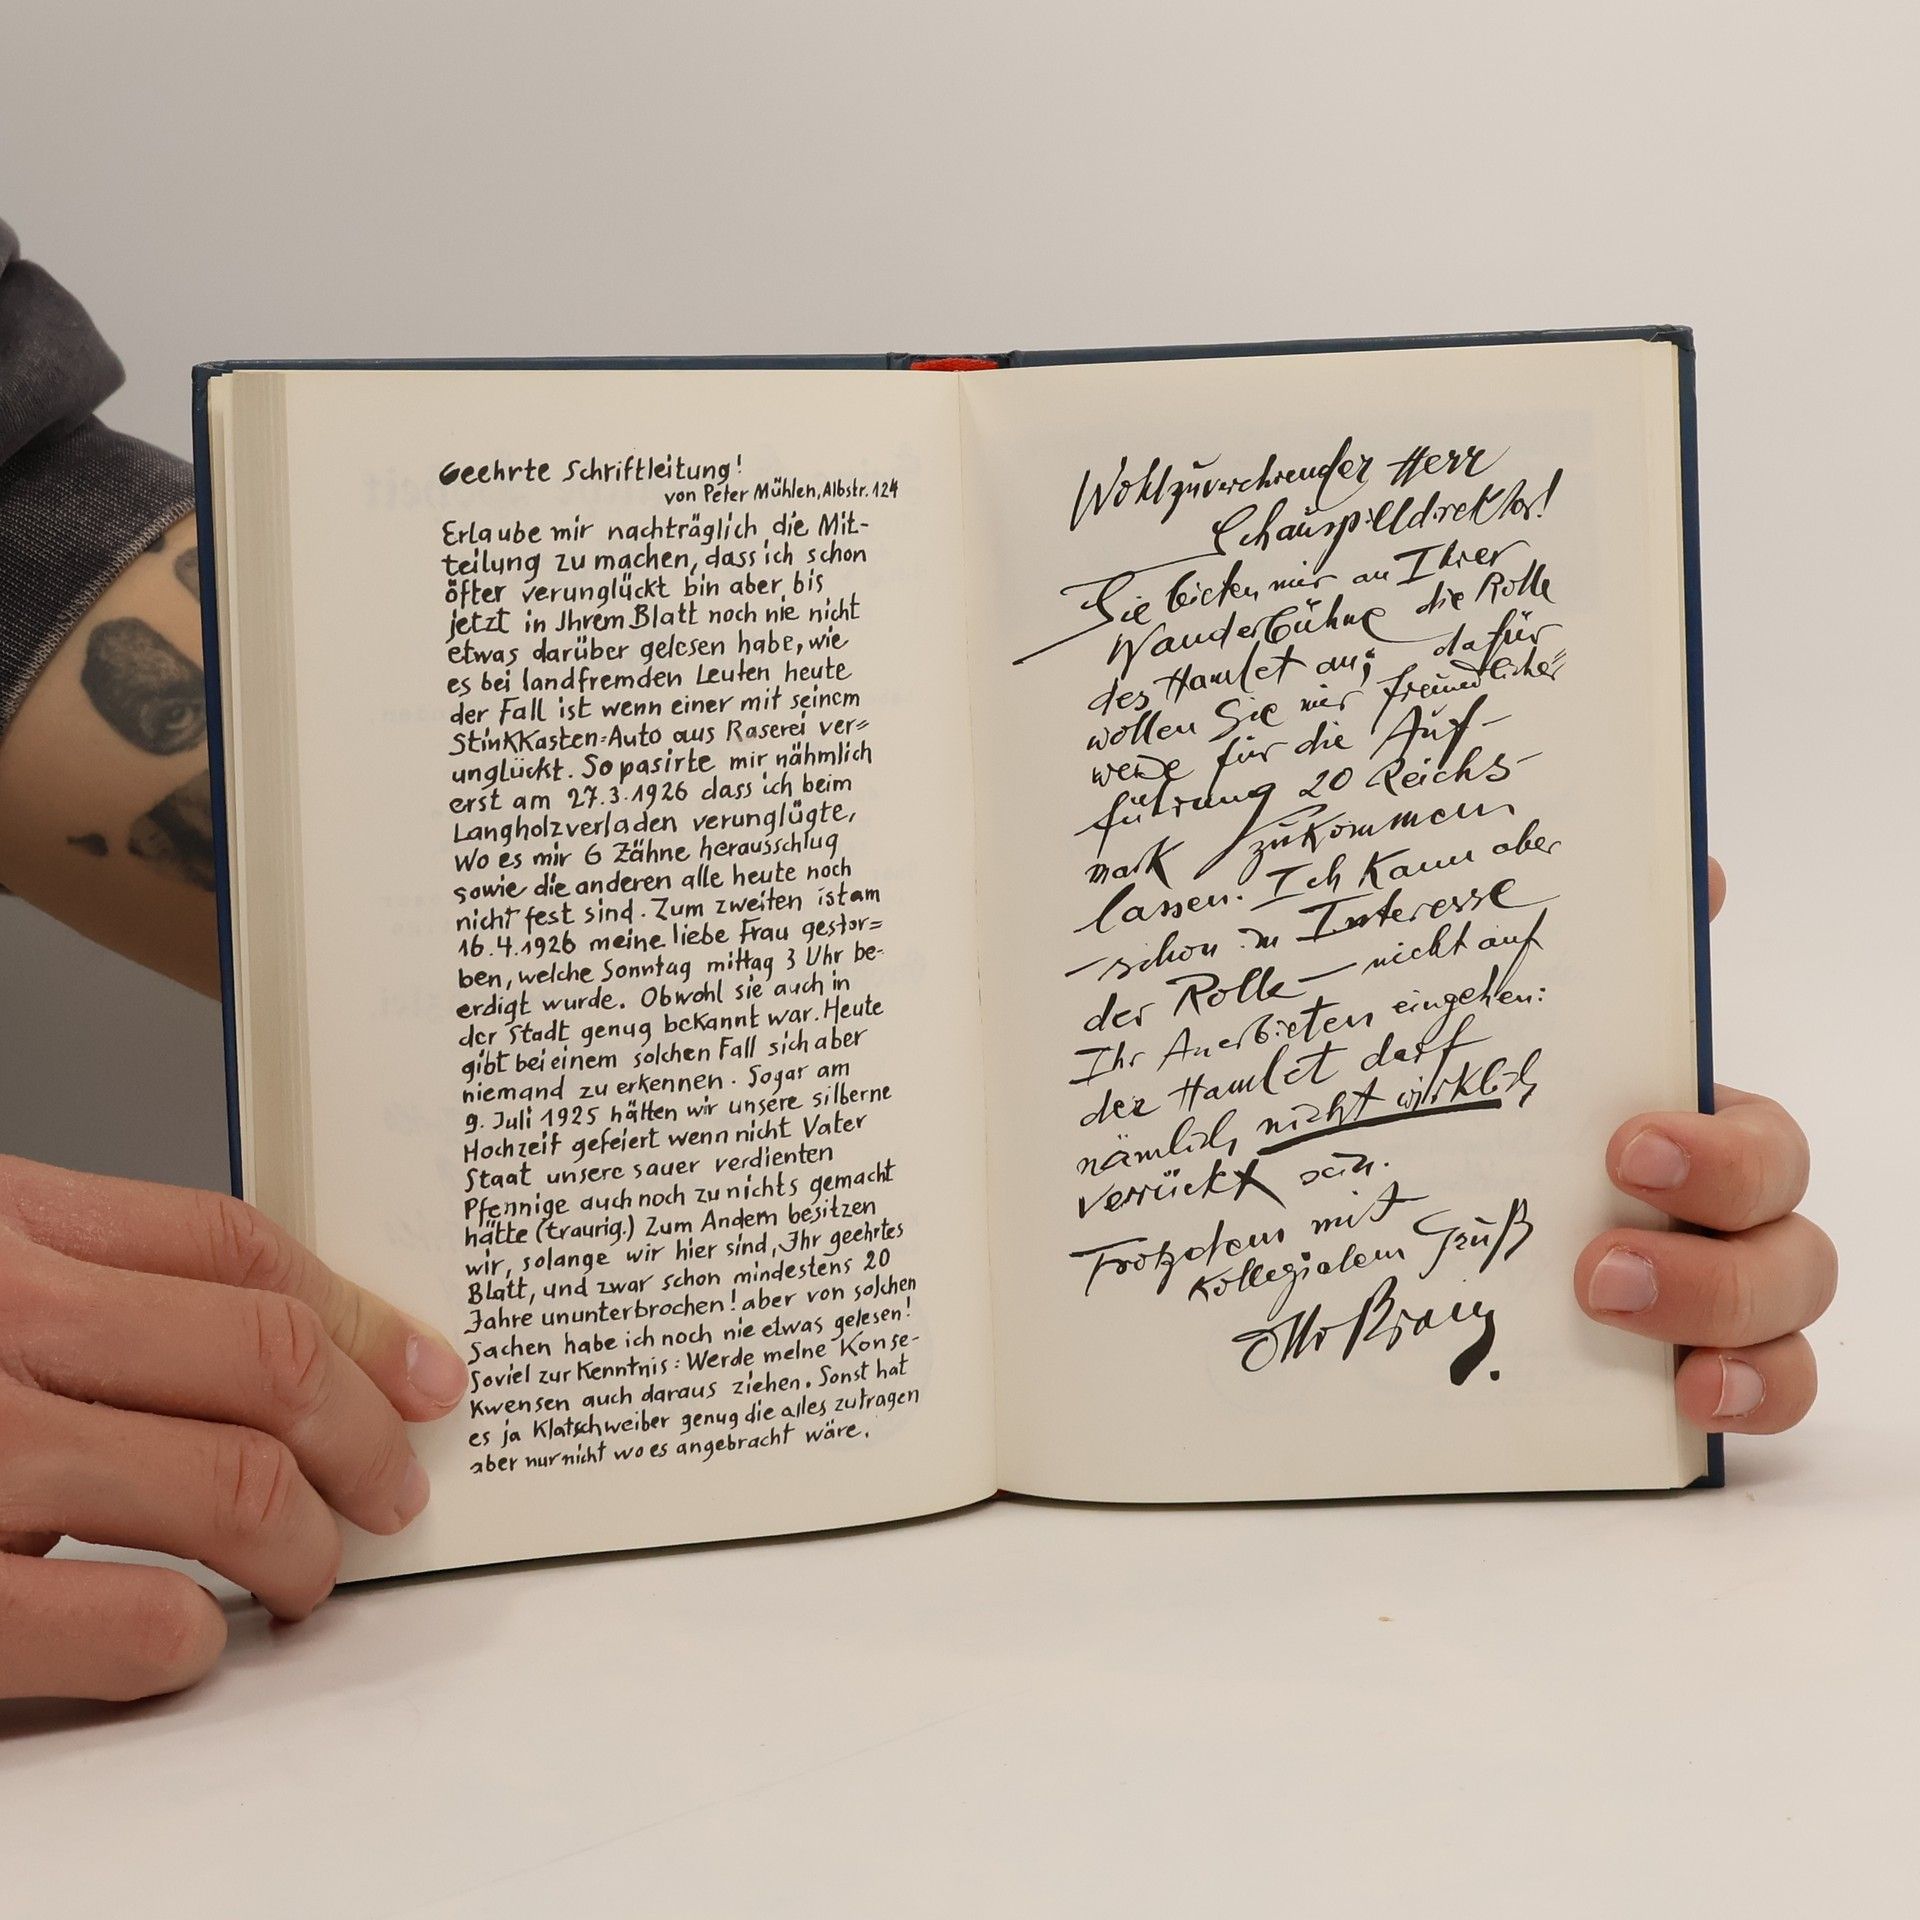 Geehrte Schriftleitung!
von Peter Mühlen, Albstr. 124
Erlaube mir nachträglich die Mit-
teilung zu machen, dass ich schon
öfter verunglückt bin aber bis
jetzt in Jhrem Blatt noch nie nicht
etwas darüber gelesen habe, wie
es bei landfremden Leuten heute
der Fall ist wenn einer mit seinem
Stinkkasten=Auto aus Raserei ver=
unglückt. So pasirte mir nähmlich
erst am 27.3.1926 dass ich beim
Langholzverladen verunglügte,
Wo es mir 6 Zähne herausschlug
sowie die anderen alle heute noch
nicht fest sind. Zum zweiten ist am
16.4.1926 meine liebe Frau gestor=
ben, welche Sonntag mittag 3 Uhr be-
erdigt wurde. Obwohl sie auch in
der Stadt genug bekannt war. Heute
gibt bei einem solchen Fall sich aber
niemand zu erkennen. Sogar am
9. Juli 1925 hätten wir unsere silberne
Hochzeit gefeiert wenn nicht Vater
Staat unsere sauer verdienten
Pfennige auch noch zu nichts gemacht
hätte (traurig.) Zum Andern besitzen
wir, solange wir hier sind, Jhr geehrtes
Blatt, und zwar schon mindestens 20
Jahre ununterbrochen! aber von solchen
Sachen habe ich noch nie etwas gelesen!
Soviel zur Kenntnis: Werde meine Konse-
kwensen auch daraus ziehen. Sonst hat
es ja Klatschweiber genug die alles zutragen
aber nur nicht wo es angebracht wäre.
Wohlzuverehrender Herr
Schauspielldirektor!
Sie bieten mir an Ihrer
Wanderbühne die Rolle
des Hamlet an; dafür
wollen Sie mir freundlicher=
weise für die Auf-
führung 20 Reichs-
mark zukommen
lassen. Ich kann aber
– schon im Interesse
der Rolle – nicht auf
Ihr Anerbieten eingehen:
der Hamlet darf
nämlich nicht wirklich
verrückt sein.
Trotzdem mit
kollegialem Gruß
Otto